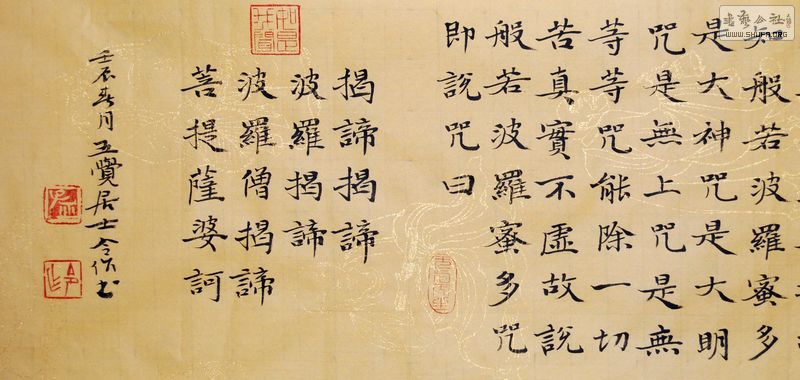 书艺公社
WWW.SHUFA.ORG
知般若波羅蜜多
是大神咒是大明
咒是無上咒是無
等等咒能除一切
苦真實不虛故說
般若波羅蜜多咒
即說咒曰
揭諦揭諦
波羅揭諦
波羅僧揭諦
菩提薩婆訶
壬辰春月五覺居士令作书